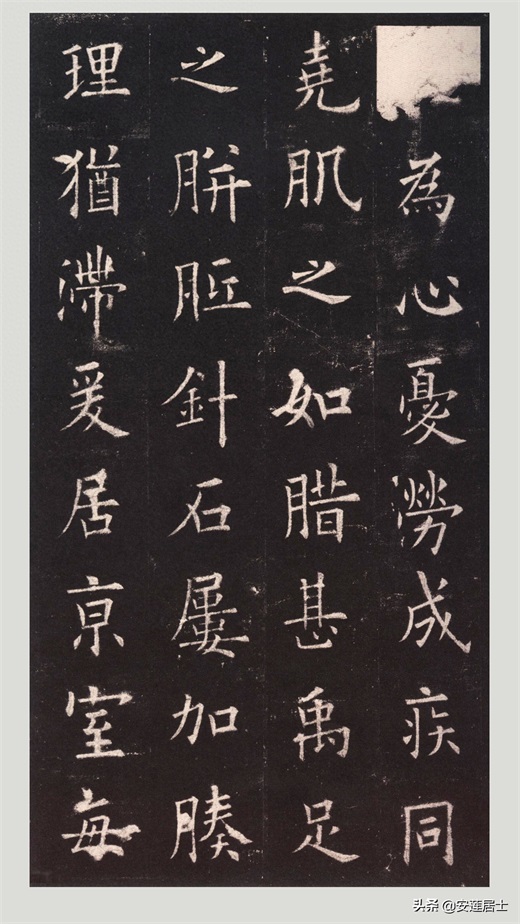 為心憂澇成疾同
堯肌之如腊甚禹足
之胼胝針石屢加腠
理猶滯爰居亰室每
头条 @安莲居士